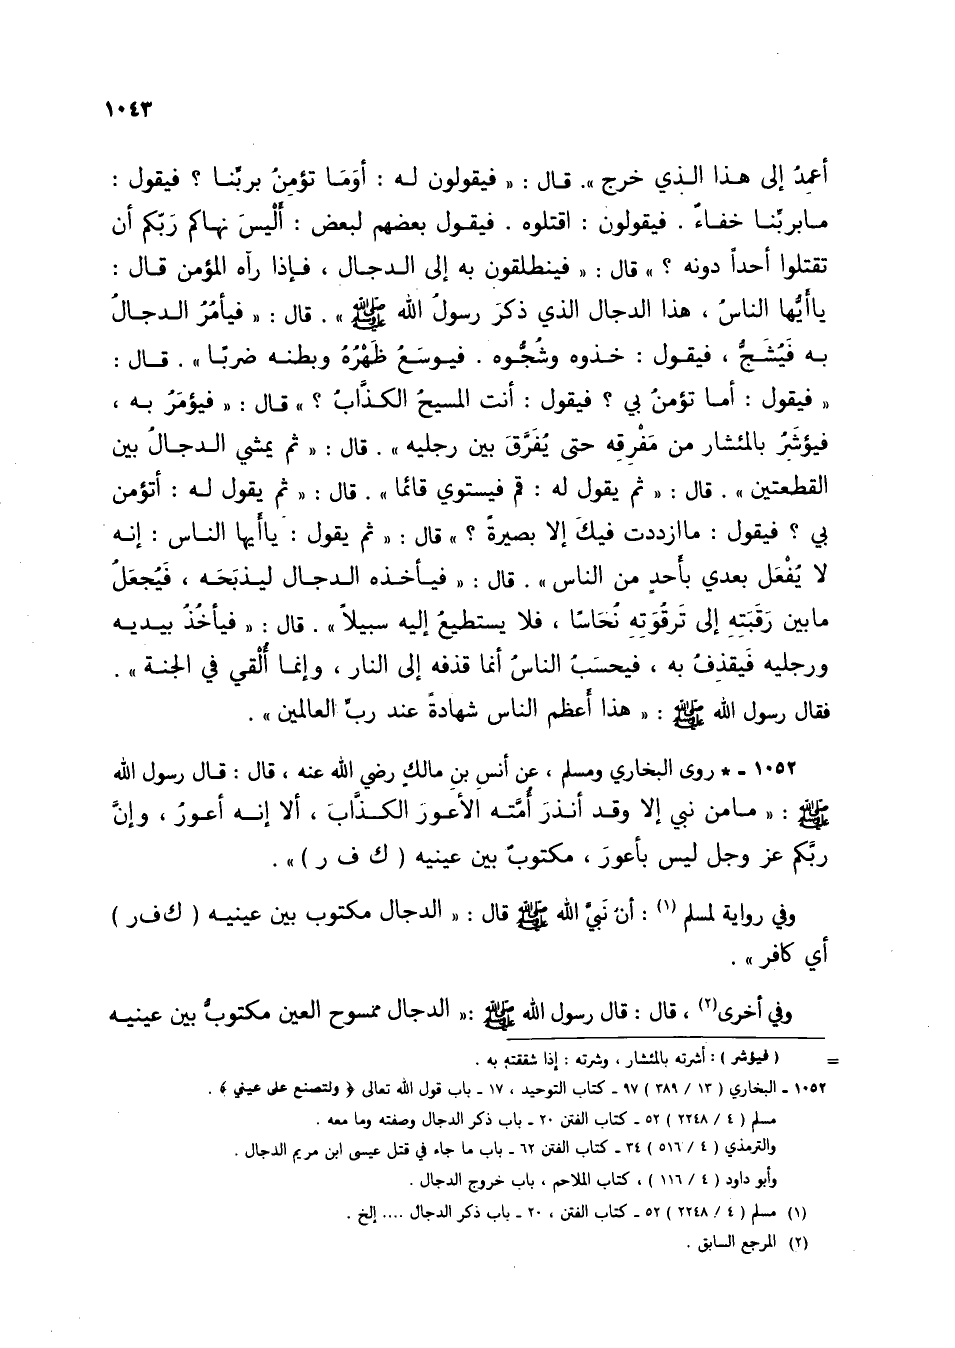 ١٠٤٣
أعمِدُ إلى هـذا الـذي خرج ». قـال : « فيقولون لـه : أوَمَـا تؤمِنُ بربِّنـا ؟ فيقول :
مـابربِّنـا خفـاءٌ . فيقولون : اقتلوه . فيقـول بعضهم لبعض : أَلْيسَ نهاكم رَبّكم أن
تقتلوا أحداً دونه ؟ » قال : « فينطلقون به إلى الـدجـال ، فـإذا رآه المؤمن قـال :
ياأَيُّها الناسُ ، هذا الدجال الذي ذكرَ رسولُ الله ﷺ » . قال : « فيأمُرُ الـدجالُ
بـه فَيُشَـجُّ ، فيقـول : خـذوه وشُجُّوه . فيـوسَـعُ ظَهْرُهُ وبطنـه ضربًـا » . قـال :
« فيقول : أمـا تؤمنُ بي ؟ فيقول : أنت المسيحُ الكـذَّابُ ؟ » قـال : « فيؤمَرُ بـه ،
فيؤشَرُ بالمئشار من مَفْرِقِه حتى يُفَرَّقَ بين رجليه » . قال : « ثم يمشي الـدجـالُ بين
القطعتين » . قال : « ثم يقول له : قم فيستوي قائمًا » . قال : « ثم يقول لـه : أتؤمن
بي ؟ فيقول : ماازددت فيكَ إلا بصيرةً ؟ » قال : « ثم يقول : ياأيها النـاس : إنـه
لا يُفْعَل بعدي بأحدٍ من الناس » . قال : « فيـأخـذه الـدجـال ليـذبَحَـه ، فَيُجعَلُ
مابين رَقَبَتِهِ إلى تَرقُوَتِهِ نُحَاسًا ، فلا يستطيعُ إليه سبيلاً » . قال : « فيأخُذُ بيـديـه
ورجليه فَيقذفُ به ، فيحسَبُ الناسُ أنما قذفه إلى النار ، وإنمـا أُلْقي في الجنـة » .
فقال رسول الله ﷺ : « هذا أَعظم الناس شهادةً عند ربِّ العالمين » .
١٠٥٢ - * روى البخاري ومسلم ، عن أنس بن مالكٍ رضي الله عنه ، قال : قـال رسول الله
ﷺ : « مـامن نبي إلا وقـد أنـذرَ أُمَّتـه الأعـورَ الكـذَّابَ ، ألا إنـه أعـورُ ، وإنَّ
ربَّكم عز وجل ليس بأعورَ ، مكتوبٌ بين عينيه ( ك ف ر ) » .
وفي رواية لمسلم (١) : أن نَبيَّ الله ﷺ قال : « الدجال مكتوب بين عينيـه ( ك ف ر )
أي كافر » .
وفي أخرى(٢) ، قال : قال رسول الله ﷺ :« الدجال ممسوح العين مكتوبٌ بين عينيـه
= ( فيؤشر ) : أشرته بالمئشار ، وشرته : إذا شققته به .
١٠٥٢ - البخاري ( ١٣ / ٣٨٩ ) ٩٧ - كتاب التوحيد ، ١٧ - باب قول الله تعالى ﴿ ولتصنع على عيني ﴾ .
مسلم ( ٤ / ٢٢٤٨ ) ٥٢ - كتاب الفتن ٢٠ - باب ذكر الدجال وصفته وما معه .
والترمذي ( ٤ / ٥١٦ ) ٣٤ - كتاب الفتن ٦٢ - باب ما جاء في قتل عيسى ابن مريم الدجال .
وأبو داود ( ٤ / ١١٦ ) ، كتاب الملاحم ، باب خروج الدجال .
(١) مسلم ( ٤ / ٢٢٤٨ ) ٥٢ - كتاب الفتن ، ٢٠ - باب ذكر الدجال .... إلخ .
(٢) المرجع السابق .